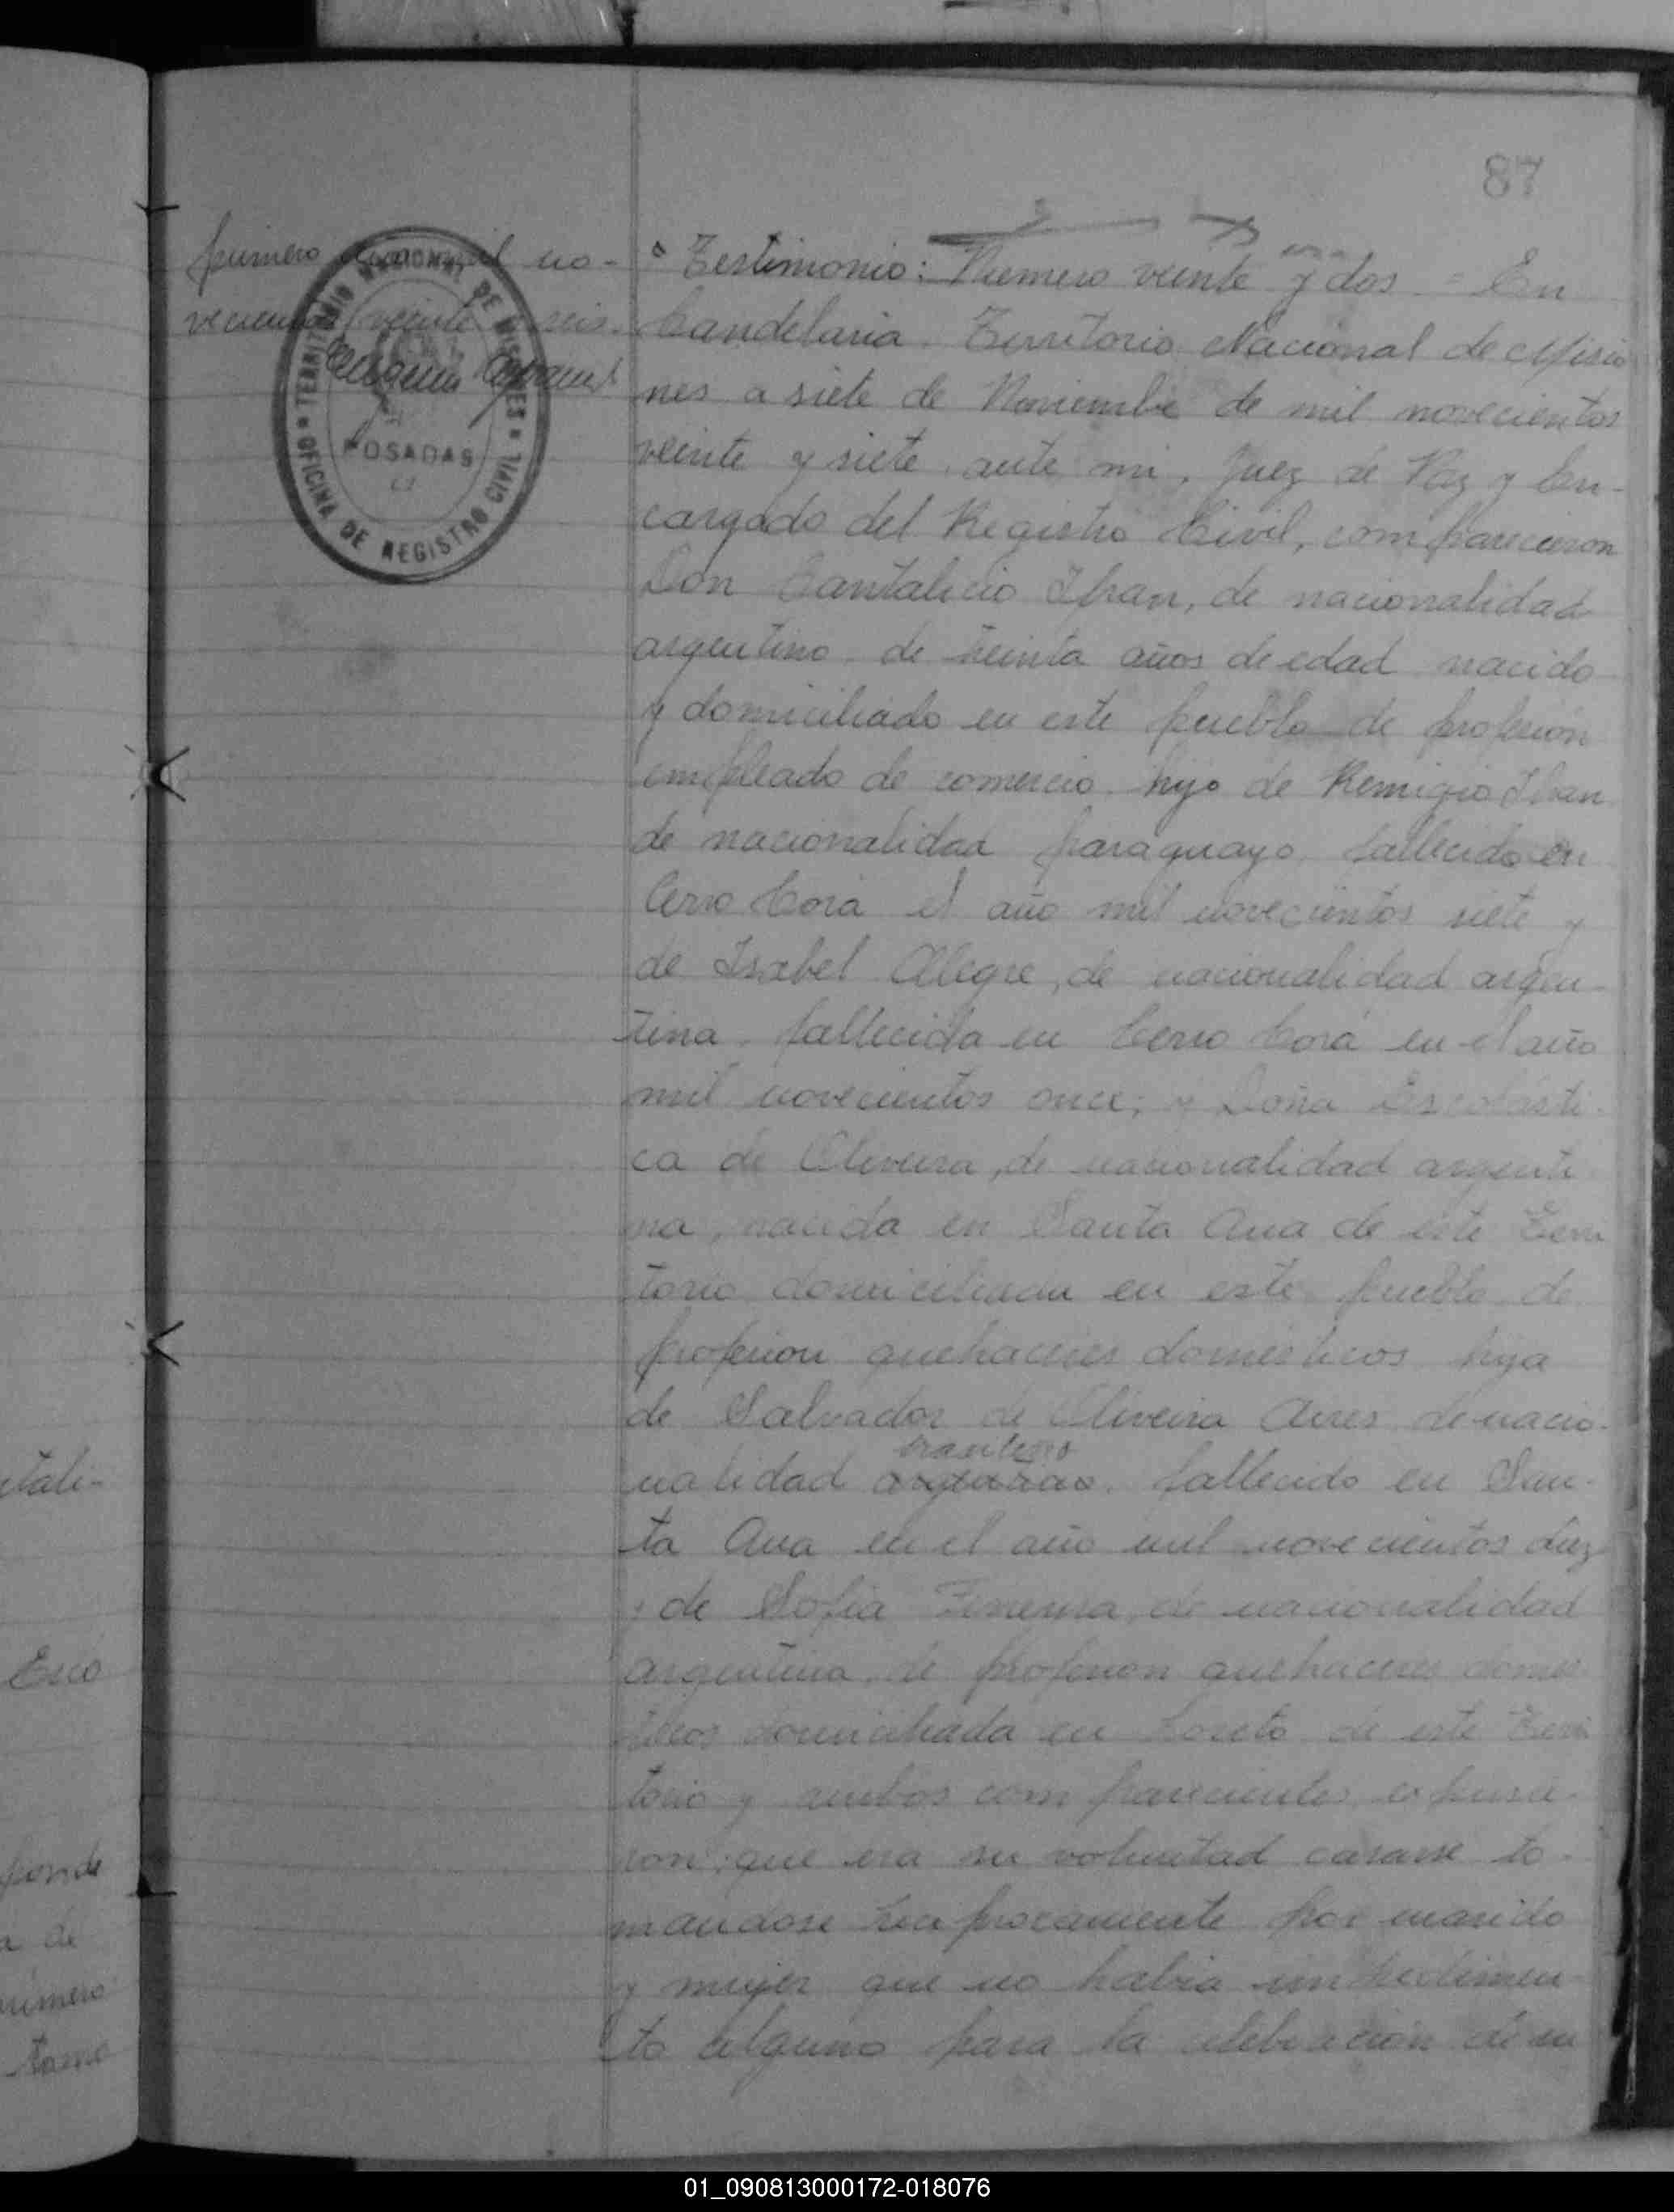 87
primero de mil no-
vecientos veinte y seis.
TERRITORIO NACIONAL DE MISIONES
POSADAS
OFICINA DE REGISTRO CIVIL
Testimonio: Numero veinte y dos - En
Candelaria, Territorio Nacional de Misio
nes a siete de Noviembre de mil novecientos
veinte y siete, ante mi, Juez de Paz y En-
cargado del Registro Civil, comparecieron
Don Cantalicio Ifran, de nacionalidad
argentino, de treinta años de edad nacido
y domiciliado en este pueblo de profesion
empleado de comercio, hijo de Remigio Ifran
de nacionalidad paraguayo, fallecido en
Cerro Corá el año mil novecientos siete y
de Isabel Alegre, de nacionalidad argen-
tina, fallecida en Cerro Corá en el año
mil novecientos once; y Doña Escolasti-
ca de Oliveira, de nacionalidad argenti
na, nacida en Santa Ana de este Terri
torio domiciliada en este pueblo de
profesion quehaceres domesticos hija
de Salvador de Oliveira Aires de nacio-
brasilero
nalidad, fallecido en San-
ta Ana en el año mil novecientos diez
y de Sofia, de nacionalidad
argentina, de profesion quehaceres domes
ticos domiciliada en Loreto de este Terri
torio y ambos comparecientes expusie-
ron: que era su voluntad casarse to-
mandose reciprocamente por marido
y mujer que no habia impedimen-
to alguno para la celebracion de su
itali-
Eco
ponde
a de
primero
tomo
01_090813000172-018076